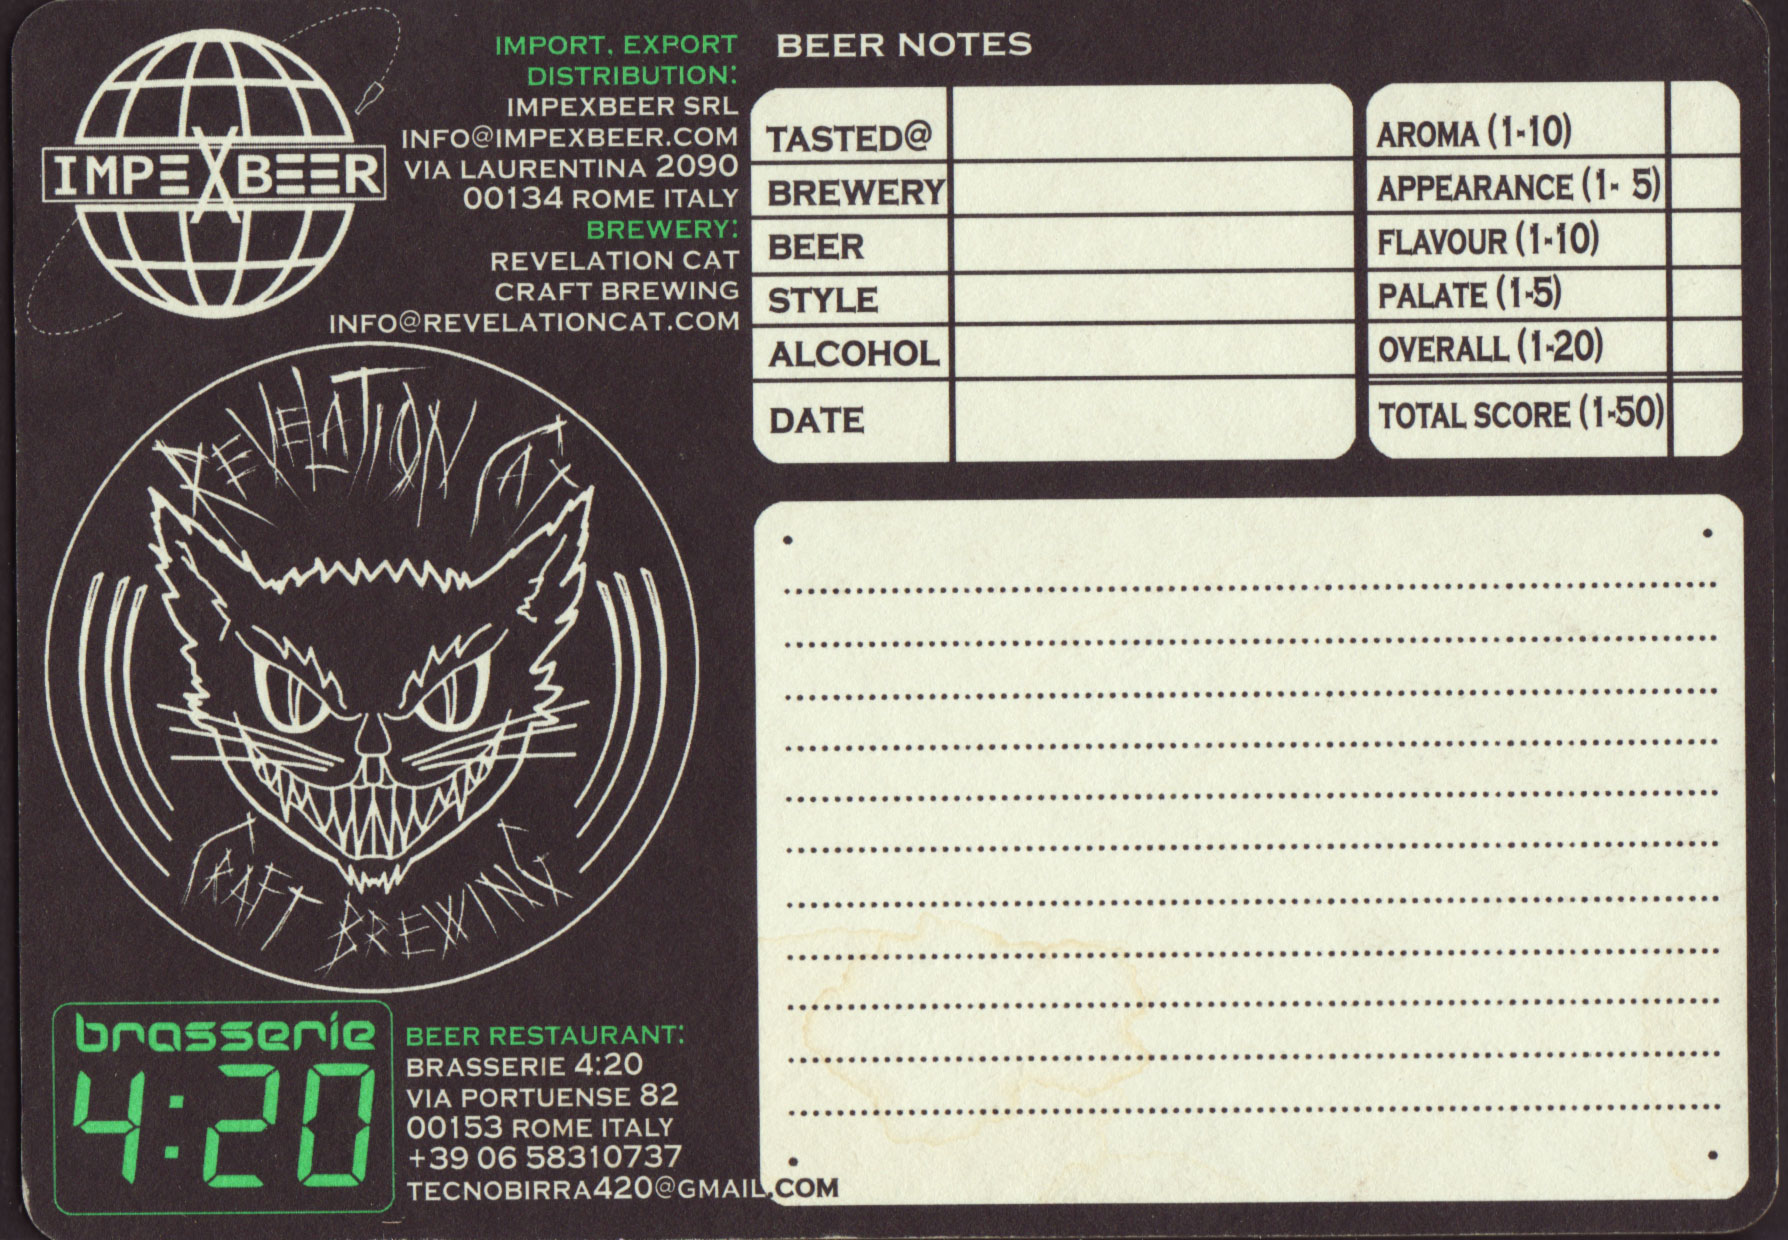 IMPEXBEER
IMPORT, EXPORT
DISTRIBUTION:
IMPEXBEER SRL
INFO@IMPEXBEER.COM
VIA LAURENTINA 2090
00134 ROME ITALY
BREWERY:
REVELATION CAT
CRAFT BREWING
INFO@REVELATIONCAT.COM
REVELATION CAT
CRAFT BREWING
brasserie
4:20
BEER RESTAURANT:
BRASSERIE 4:20
VIA PORTUENSE 82
00153 ROME ITALY
+39 06 58310737
TECNOBIRRA420@GMAIL.COM
BEER NOTES
TASTED@
BREWERY
BEER
STYLE
ALCOHOL
DATE
AROMA (1-10)
APPEARANCE (1- 5)
FLAVOUR (1-10)
PALATE (1-5)
OVERALL (1-20)
TOTAL SCORE (1-50)